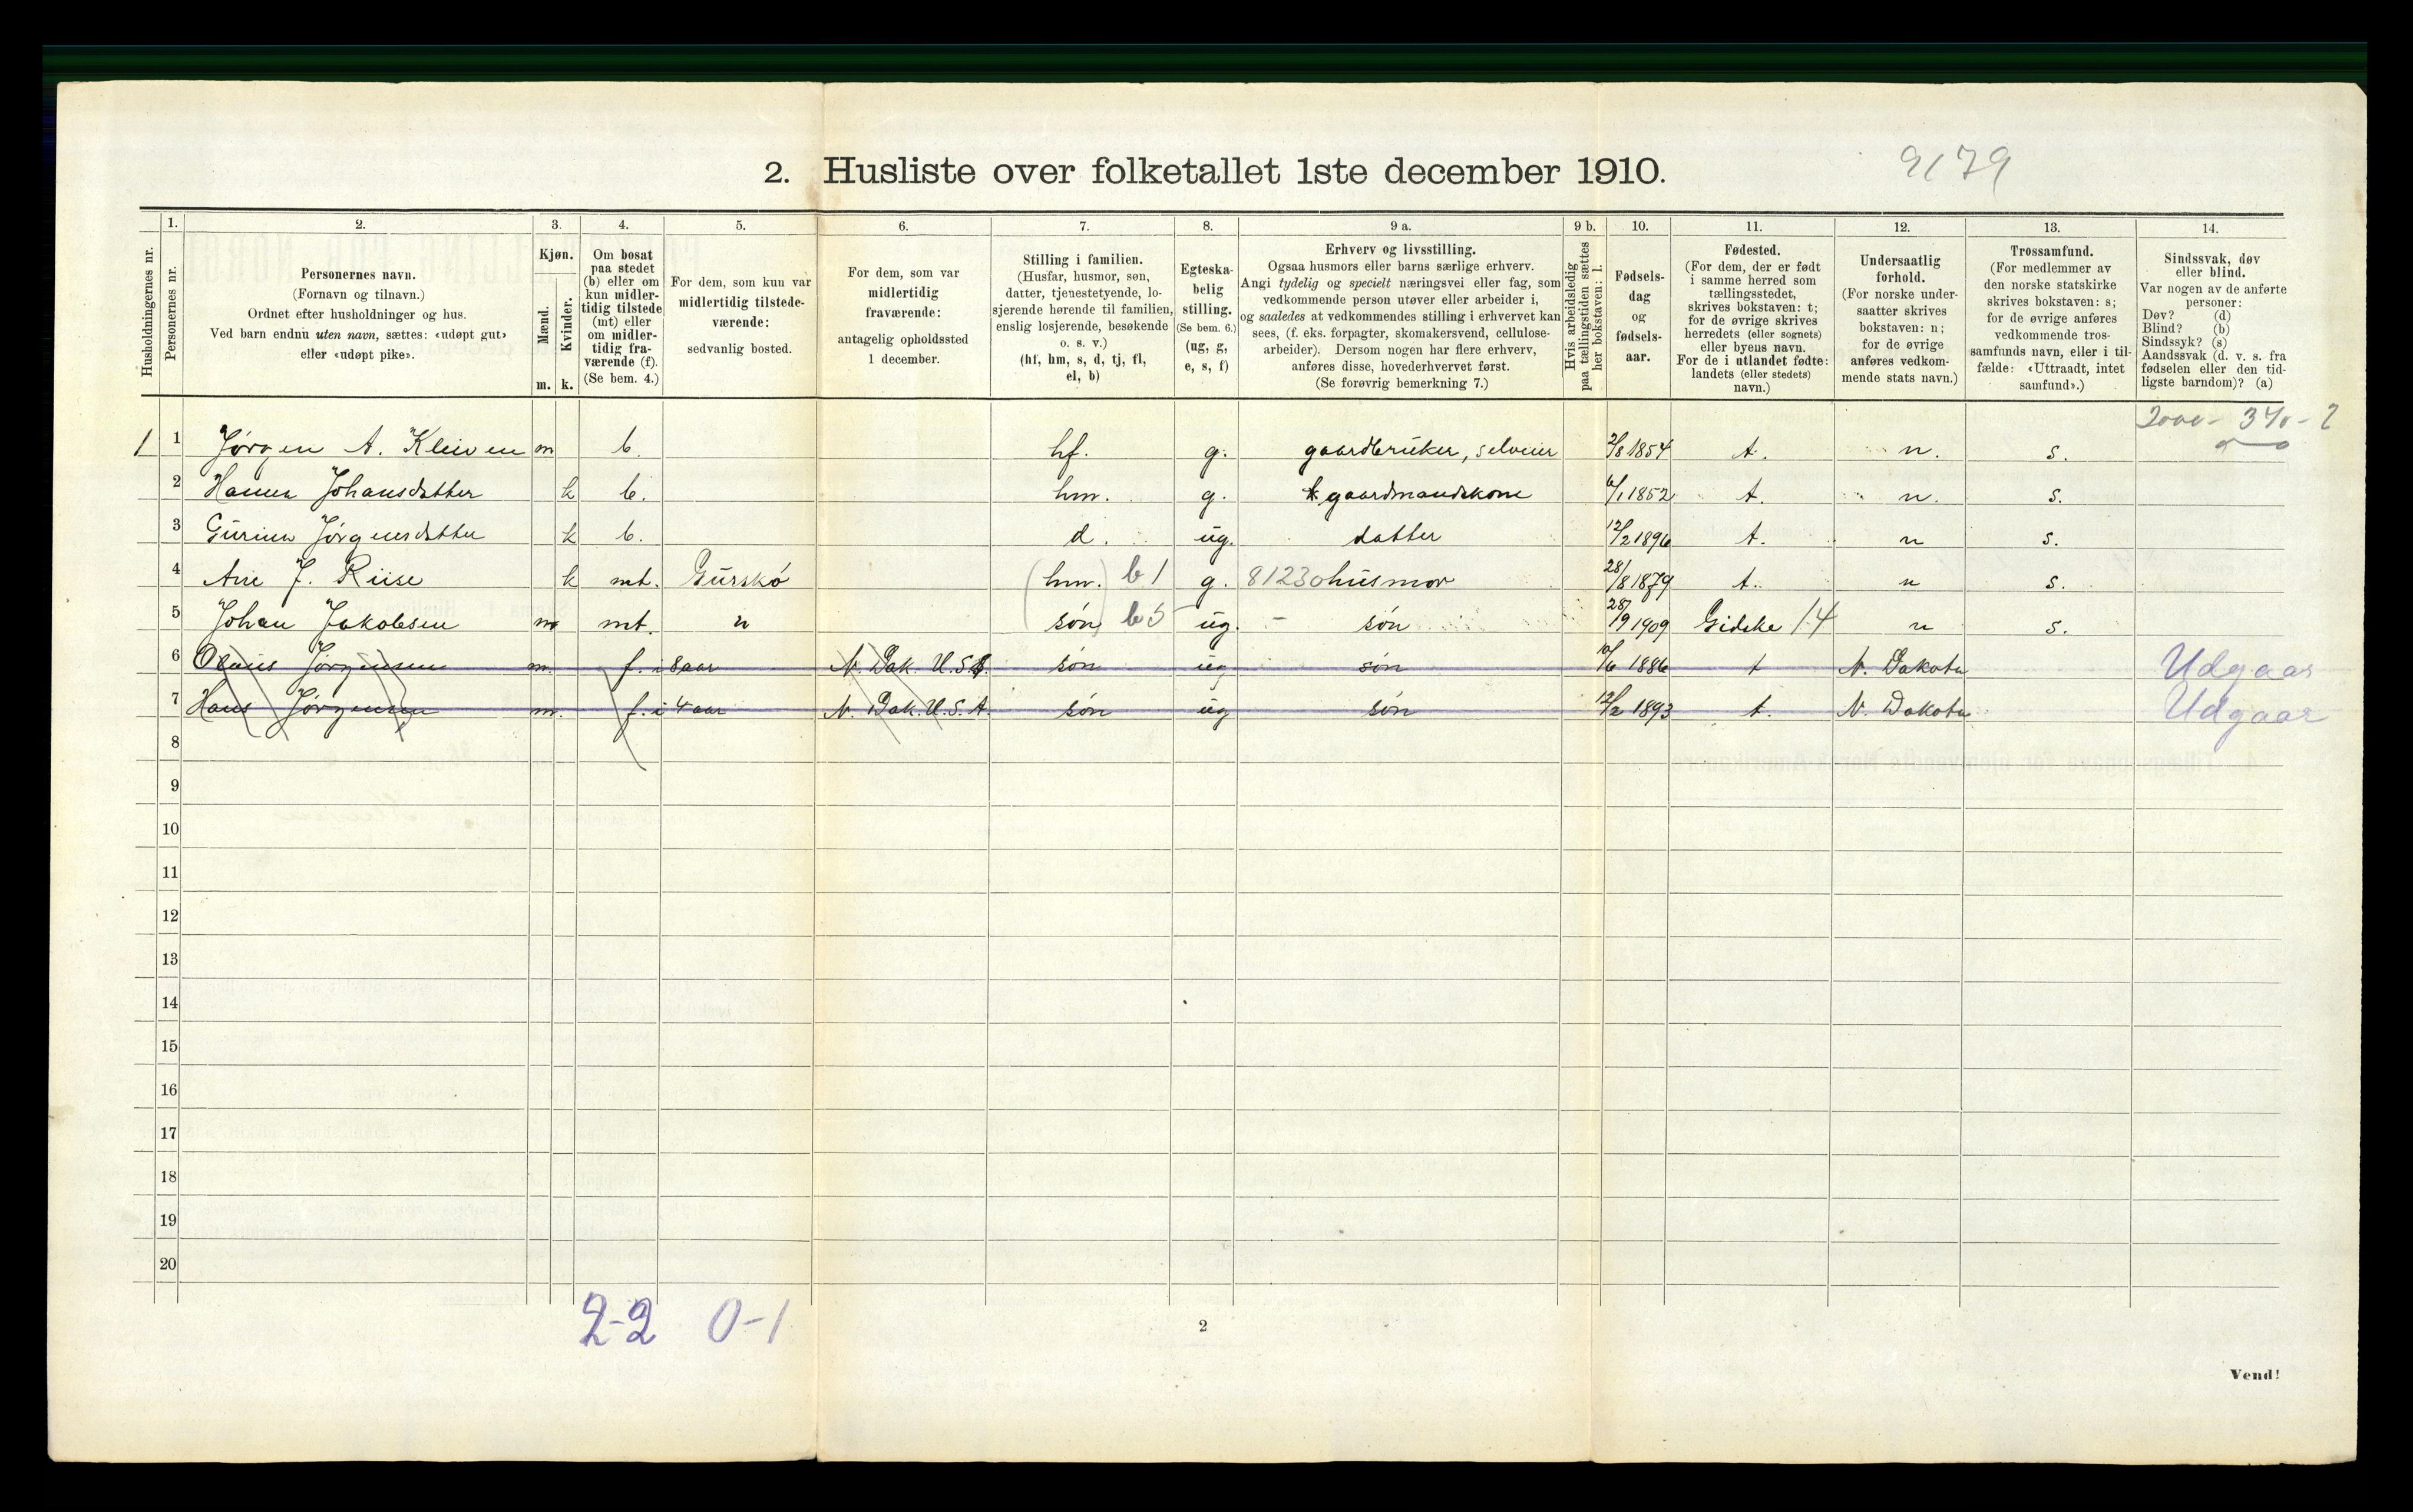 9179
2. Husliste over folketallet 1ste december 1910.
Husholdningernes nr.
1.
Personernes nr.
2.
Personernes navn.
(Fornavn og tilnavn.)
Ordnet efter husholdninger og hus.
Ved barn endnu uten navn, sættes: «udøpt gut»
eller «udøpt pike».
3.
Kjøn.
Mænd.
Kvinder.
m. k.
4.
Om bosat
paa stedet
(b) eller om
kun midler-
tidig tilstede
(mt) eller
om midler-
tidig fra-
værende (f).
(Se bem. 4.)
5.
For dem, som kun var
midlertidig tilstede-
værende:
sedvanlig bosted.
6.
For dem, som var
midlertidig
fraværende:
antagelig opholdssted
1 december.
7.
Stilling i familien.
(Husfar, husmor, søn,
datter, tjenestetyende, lo-
sjerende hørende til familien,
enslig losjerende, besøkende
o. s. v.)
(hf, hm, s, d, tj, fl,
el, b)
8.
Egteska-
belig
stilling.
(Se bem. 6.)
(ug, g,
e, s, f)
9 a.
Erhverv og livsstilling.
Ogsaa husmors eller barns særlige erhverv.
Angi tydelig og specielt næringsvei eller fag, som
vedkommende person utøver eller arbeider i,
og saaledes at vedkommendes stilling i erhvervet kan
sees, (f. eks. forpagter, skomakersvend, cellulose-
arbeider). Dersom nogen har flere erhverv,
anføres disse, hovederhvervet først.
(Se forøvrig bemerkning 7.)
9 b.
Hvis arbeidsledig
paa tællingstiden sættes
her bokstaven: l.
10.
Fødsels-
dag
og
fødsels-
aar.
11.
Fødested.
(For dem, der er født
i samme herred som
tællingsstedet,
skrives bokstaven: t;
for de øvrige skrives
herredets (eller sognets)
eller byens navn.
For de i utlandet fødte:
landets (eller stedets)
navn.)
12.
Undersaatlig
forhold.
(For norske under-
saatter skrives
bokstaven: n;
for de øvrige
anføres vedkom-
mende stats navn.)
13.
Trossamfund.
(For medlemmer av
den norske statskirke
skrives bokstaven: s;
for de øvrige anføres
vedkommende tros-
samfunds navn, eller i til-
fælde: «Uttraadt, intet
samfund».)
14.
Sindssvak, døv
eller blind.
Var nogen av de anførte
personer:
Døv? (d)
Blind? (b)
Sindssyk? (s)
Aandssvak (d. v. s. fra
fødselen eller den tid-
ligste barndom)? (a)
1 1 Jørgen A. Kleiven m b. hf. g. gaardbruker, selveier 2/8 1854 t. n. s.
2 Hanna Johansdatter k b. hm. g. gaardmandskone 6/1 1852 t. n. s.
3 Gurina Jørgensdatter k b. d. ug. datter 12/2 1896 t. n s.
4 Ane J. Riise k mt. Gurskø (hm.) b 1 g. 81230 husmor 28/8 1879 t. n s.
5 Johan Jakobsen m mt. " (søn) b 5 ug. - søn 28/9 1909 Gidske 14 n s.
6 Jørgensen m. f. i 8 aar N. Dak. U.S.A. søn ug søn 10/6 1886 t N. Dakota Udgaar
7 Hans Jørgensen m. f. i 4 aar N. Dak. U.S.A. søn ug søn 12/2 1893 t. N. Dakota Udgaar
8
9
10
11
12
13
14
15
16
17
18
19
20
2-2 0-1
2
Vend!